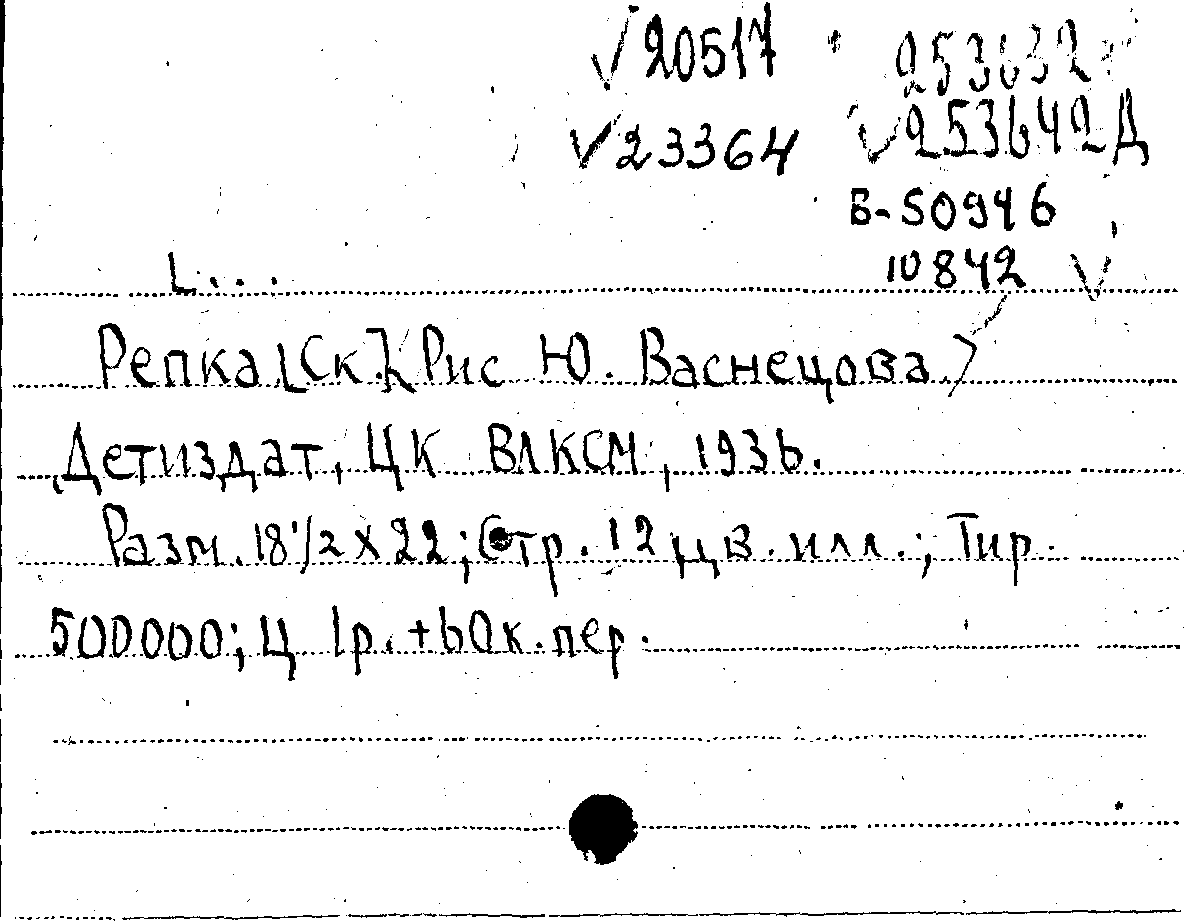 √20517 253632
√23364 √253642Д
Б-50946
10842 √
L...
Репка [Ск.] [Рис Ю. Васнецова.]
Детиздат, ЦК ВЛКСМ, 1936.
Разм. 18 1/2 х 22; Стр. 12 цв. илл.; Тир.
500000; Ц 1р. + 60к. пер.